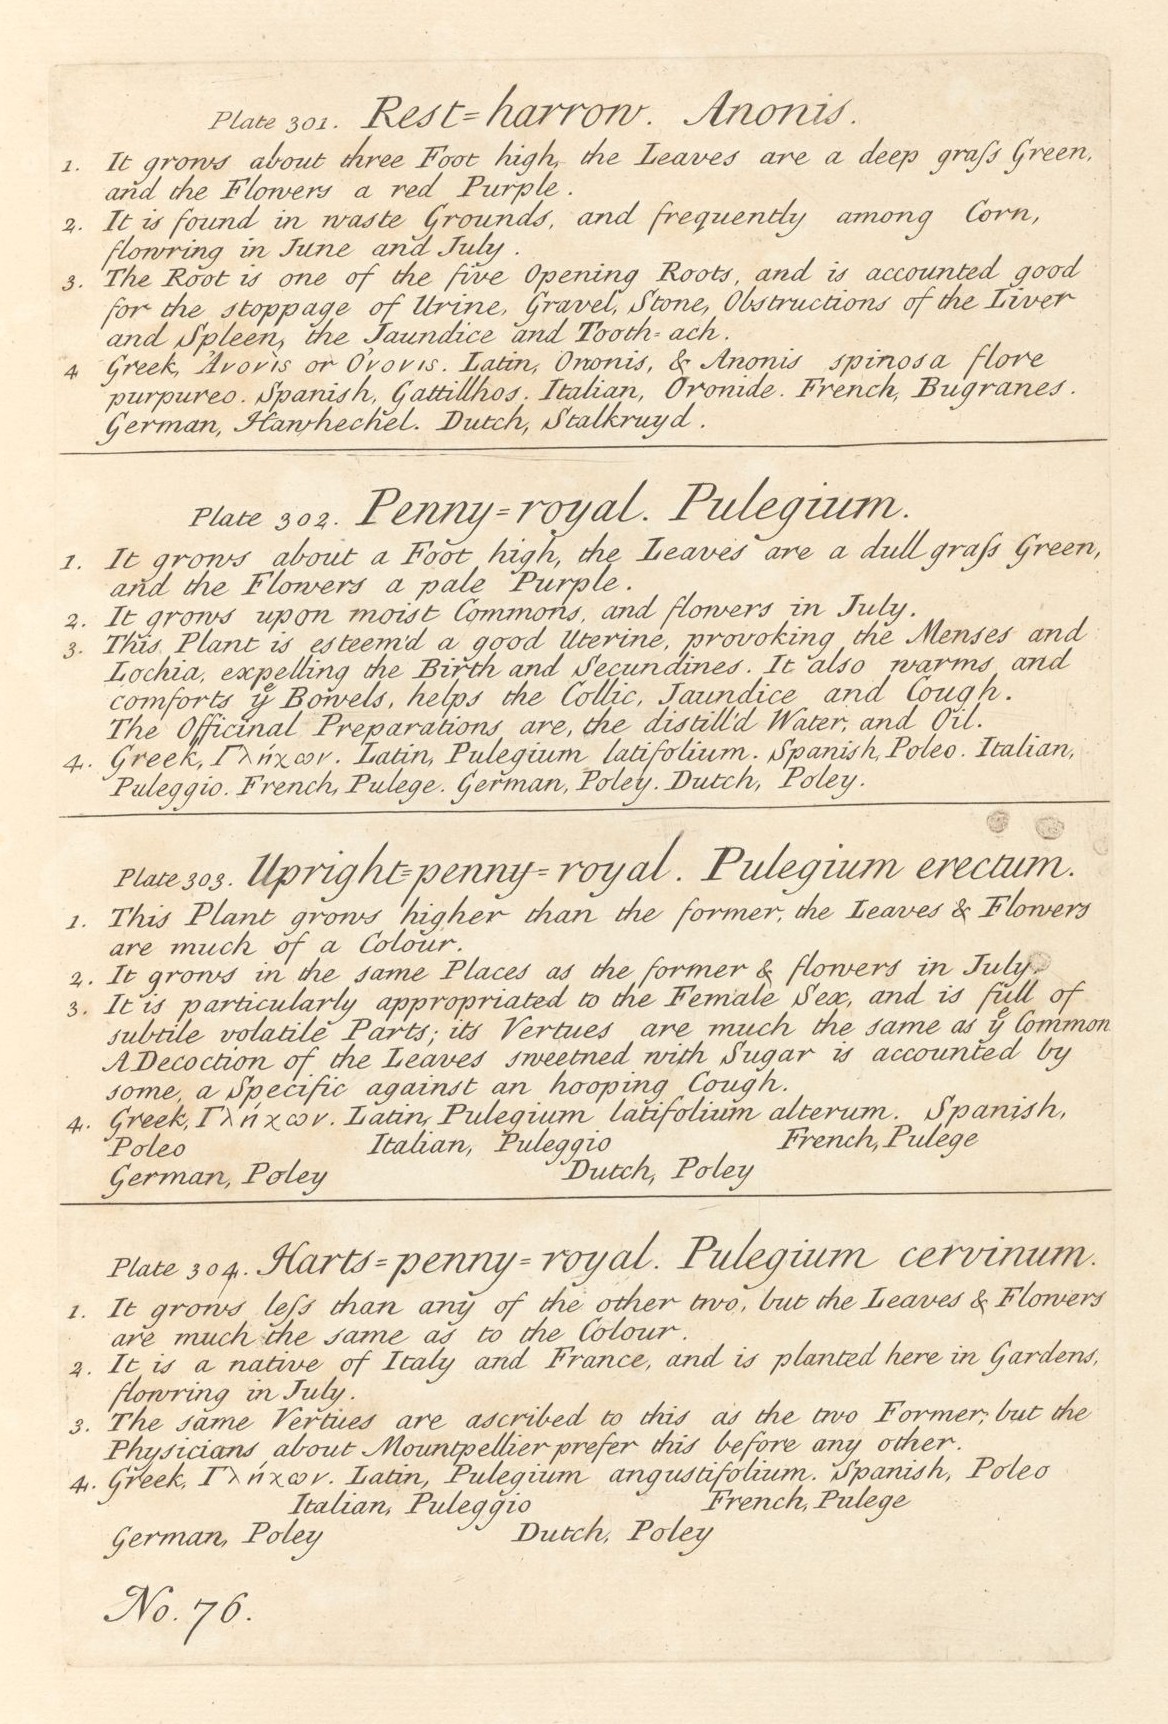 Plate 301. Rest=harrow. Anonis.
1. It grows about three Foot high, the Leaves are a deep graſs Green,
and the Flowers a red Purple.
2. It is found in waste Grounds, and frequently among Corn,
flowring in June and July.
3. The Root is one of the five Opening Roots, and is accounted good
for the stoppage of Urine, Gravel, Stone, Obstructions of the Liver
and Spleen, the Jaundice and Tooth=ach.
4 Greek, Ἄνονις or Ὄνονις. Latin, Ononis, & Anonis spinosa flore
purpureo. Spanish, Gattillhos. Italian, Oronide. French, Bugranes.
German, Hawhechel. Dutch, Stalkruyd.
Plate 302. Penny=royal. Pulegium.
1. It grows about a Foot high, the Leaves are a dull graſs Green,
and the Flowers a pale Purple.
2. It grows upon moist Commons, and flowers in July.
3. This Plant is esteem'd a good Uterine, provoking the Menses and
Lochia, expelling the Birth and Secundines. It also warms and
comforts yͤ Bowels, helps the Collic, Jaundice and Cough.
The Officinal Preparations are, the distill'd Water, and Oil.
4. Greek, Γλήχων. Latin, Pulegium latifolium. Spanish, Poleo. Italian,
Puleggio. French, Pulege. German, Poley. Dutch, Poley.
Plate 303. Upright=penny=royal. Pulegium erectum.
1. This Plant grows higher than the former, the Leaves & Flowers
are much of a Colour.
2. It grows in the same Places as the former & flowers in July.
3. It is particularly appropriated to the Female Sex, and is full of
subtile volatile Parts; its Vertues are much the same as yͤ Common
A Decoction of the Leaves sweetned with Sugar is accounted by
some, a Specific against an hooping Cough.
4. Greek, Γλήχων. Latin, Pulegium latifolium alterum. Spanish,
Poleo Italian, Puleggio French, Pulege
German, Poley Dutch, Poley
Plate 304. Harts=penny=royal. Pulegium cervinum.
1. It grows leſs than any of the other two, but the Leaves & Flowers
are much the same as to the Colour.
2. It is a native of Italy and France, and is planted here in Gardens,
flowring in July.
3. The same Vertues are ascribed to this as the two Former, but the
Physicians about Mountpellier prefer this before any other.
4. Greek, Γλήχων. Latin, Pulegium angustifolium. Spanish, Poleo
Italian, Puleggio French, Pulege
German, Poley Dutch, Poley
No. 76.